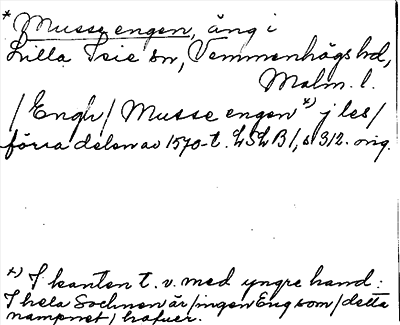 * Musse engen, äng i
Lilla Isie sn, Vemmenhögs hd,
Malm. l.
/Engh/ Musse engen *) j les/
förra delen av 1570-t. LSLB 1, s 312. orig.
*) I kanten t. v. med yngre hand:
I hela Sochnen är/ingen Eng som/detta
nampnet/hafuer.